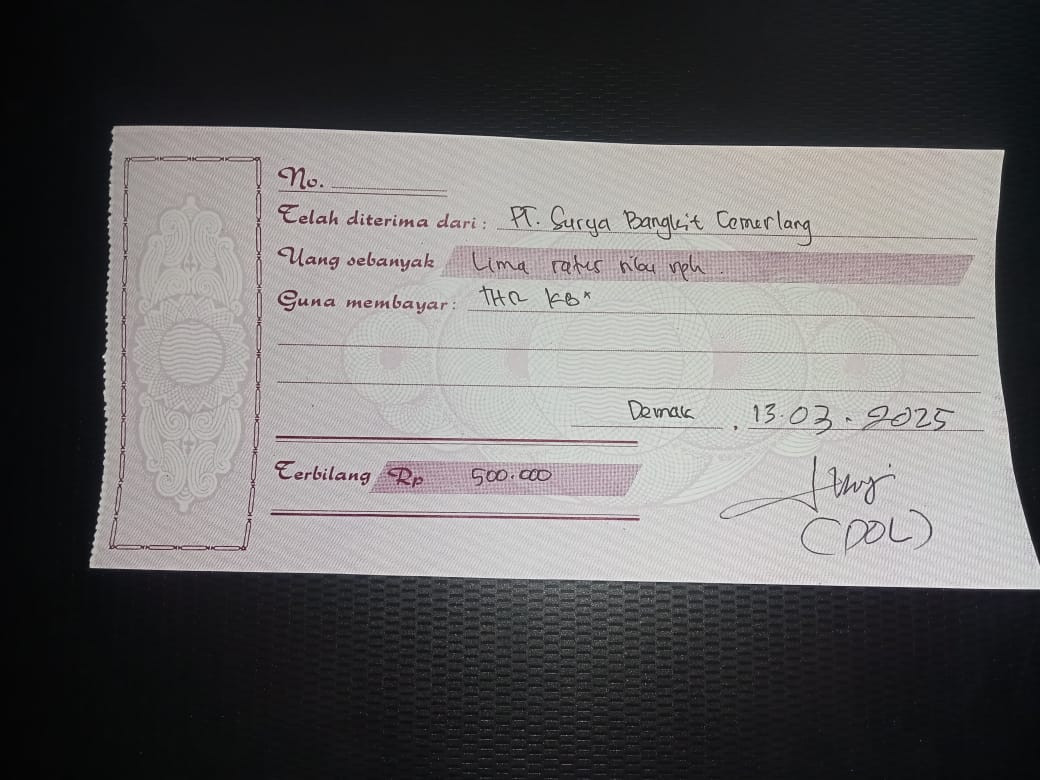 No.
Telah diterima dari : PT. Surya Bangkit Cemerlang
Uang sebanyak Lima ratus ribu rph.
Guna membayar : THR KB*
Demak, 13.03.2025
Terbilang Rp 500.000
(DOL)